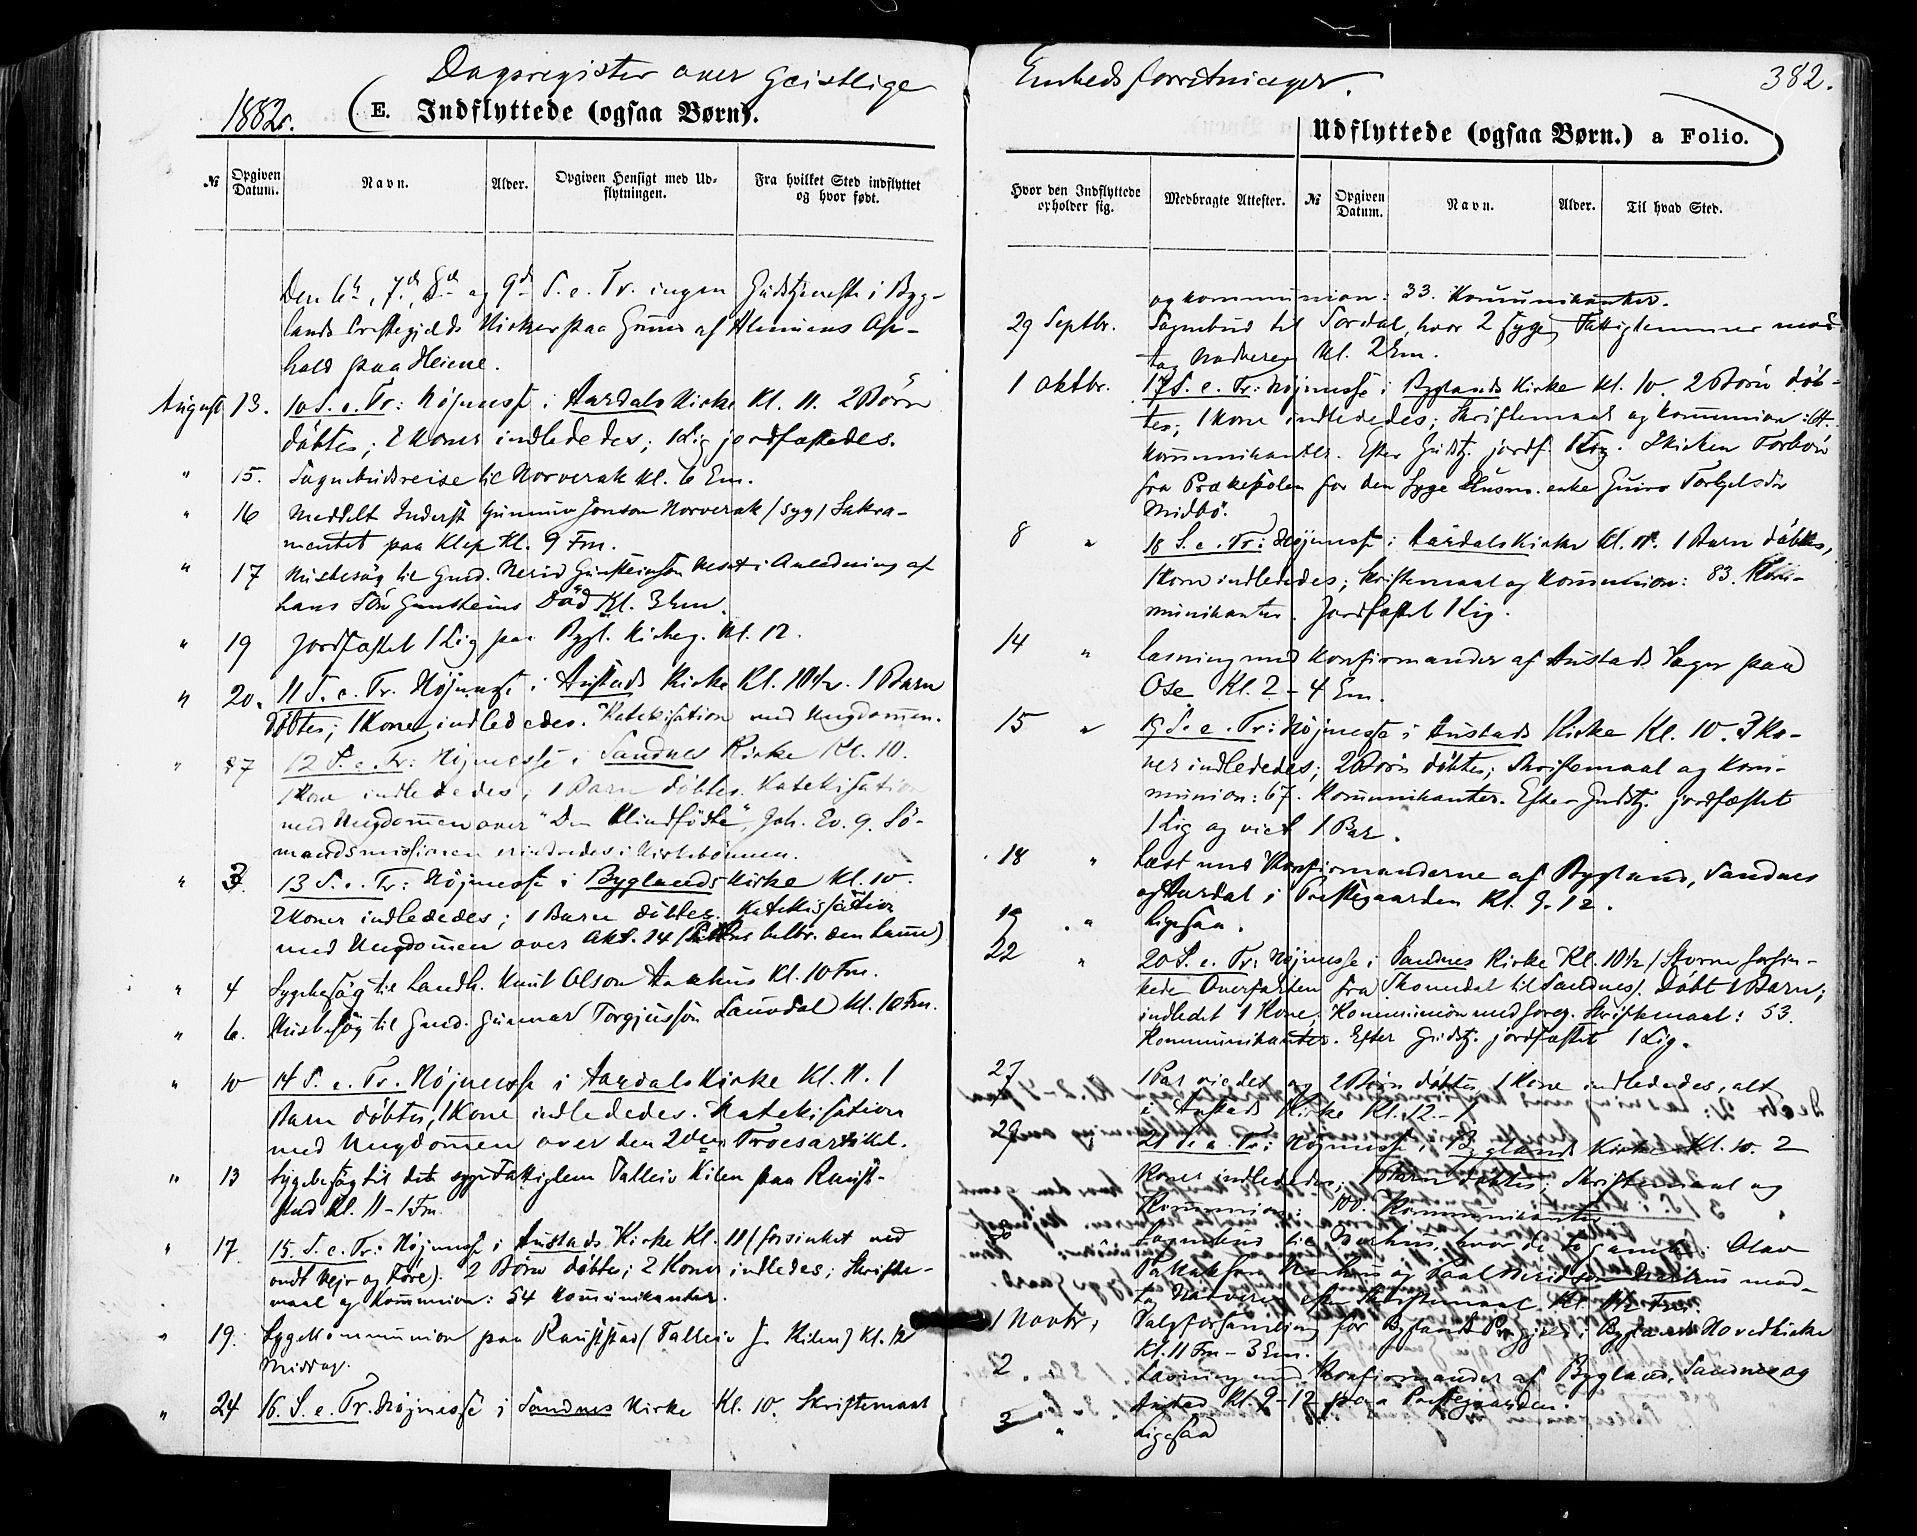 Dagsregister over Geistlige
1882.
E. Indflyttede (ogsaa Børn).
№
Opgiven Datum.
Navn.
Alder.
Opgiven Hensigt med Udflytningen.
Fra hvilket Sted indflyttet og hvor født.
Den 6te, 7de, 8de og 9de S. e. Tr. ingen Gudstjeneste i Byg-
lands Præstegjelds Kirker paa Grund af Almuens Op-
hold paa Heiene.
August 13. 10 S. e. Tr: Højmesse i Aardals Kirke Kl. 11. 2 Børn
døbtes; 2 Koner indlededes; 1 Lig jordfæstedes.
" 15. Sognebudsreise til Norverak Kl. 6 Em.
" 16 Meddelt Inderst Gunnuv Jonson Norverak (syg) Sakra-
mentet paa Klep Kl. 9 Fm.
" 17 Husbesøg til Gmd. i Anledning af
hans Søn Gunsteins Død Kl. 3 Em.
" 19 Jordfæstet 1 Lig paa Bygl. Kirkeg. Kl. 12.
" 20. 11 S. e. Tr. Højmesse i Austads Kirke Kl. 10½. 1 Barn
døbtes; 1 Kone indlededes. Katekisation med Ungdom̄en.
" 27 12 S. e. Tr: Højmesse i Sandnes Kirke Kl. 10.
1 Kone indlededes; 1 Barn døbtes. Katekisation
med Ungdom̄en over "Den Blindfødte", Joh. Ev. 9. Sø-
mandsmissionen erindredes i Kirkebønnen.
" 3. 13 S. e. Tr: Højmesse i Byglands Kirke Kl. 10.
2 Koner indlededes; 1 Barn døbtes. Katekisation
med Ungdom̄en over Akt. 14 (Paulus helbr. den Lam̄e)
" 4 Sygebesøg til Landh. Knut Olson Aakhus Kl. 10 Fm.
" 6. Husbesøg til Gmd. Gunnar Torgjusson Lauvdal Kl. 10 Fm.
" 10 14 S. e. Tr. Højmesse i Aardals Kirke Kl. 11. 1
Barn døbtes, 1 Kone indlededes. Katekisation
med Ungdom̄en over den 2den Troesartikel.
" 13 Sygebesøg til det syge Fattiglem Talleiv Kilen paa Raust-
stad Kl. 11 - 1 Fm.
" 17. 15. S. e. Tr: Højmesse i Austads Kirke Kl. 11 (forsinket ved
ondt Vejr og Føre). 2 Børn døbtes; 2 Koner indledes; Skrifte-
maal og Kom̄union: 54 Kom̄unikanter.
" 19. Sygekommunion paa Rauststad (Talleiv J. Kilen) Kl. 12
Middag.
" 24 16. S. e. Tr. Højmesse i Sandnes Kirke Kl. 10. Skriftemaal
Embedsforretninger.
382.
Udflyttede (ogsaa Børn.) a Folio.
Hvor den Indflyttede opholder sig.
Medbragte Attester.
№
Opgiven Datum.
Navn.
Alder.
Til hvad Sted.
og kommunion: 33. Kom̄unikanter.
29 Septbr. Sognebud til Tordal, hvor 2 syge Fattiglemmer mod-
tog Nadveren Kl. 2 Em.
1 Oktbr. 17 S. e. Tr: Højmesse i Byglands Kirke Kl. 10. 2 Børn døb-
tes; 1 Kone indlededes; Skriftemaal og Kom̄union:
Kom̄unikanter. Efter Gudstj. jordf. 1 Lig. Forbøn
fra Prækestolen for den syge Husm. enke
Midbø.
8 " 18 S. e. Tr: Højmesse i Aardals Kirke Kl. 11. 1 Barn døbtes,
1 Kone indlededes; Skriftemaal og Kommunion: 83. Kom̄-
munikanter. Jordfæstet 1 Lig.
14 " Læsning med Konfirmander af Austads Sogn paa
Ose Kl. 2 - 4 Em.
15 " 19 S. e. Tr: Højmesse i Austads Kirke Kl. 10. 3 Ko-
ner indlededes; 2 Børn døbtes; Skriftemaal og Kom̄-
munion: 67. Kom̄unikanter. Efter Gudstj. jordfæstet
1 Lig og viet 1 Par.
18 " Læst med Konfirmanderne af Bygland, Sandnes
og Aardal i Præstegaarden Kl. 9-12.
19 " Ligesaa.
22 " 20 S. e. Tr: Højmesse i Sandnes Kirke Kl. 10½ (Storm forsin-
kede Overfarten fra til Sandnes). Døbt 1 Barn;
indledet 1 Kone; Kommunion med foreg. Skriftemaal: 53.
Kommunikanter. Efter Gudstj. jordfæstet 1 Lig.
27 1 Par viedes og 2 Børn døbtes, 1 Kone indlededes, alt
i Austads Kirke Kl. 12. - 1
29 21 S. e. Tr: Højmesse i Byglands Kirke Kl. 10. 2
Koner indlededes; 1 Barn døbtes; Skriftemaal og
Kommunion: 100. Kommunikanter
Sognebud til hvor de to gamle: Olav
og mod-
tog Nadveren efter Skriftemaal Kl.
1 Novbr. Valgforsamling for Byglands Prgjeld i Byglands Hovedkirke
Kl. 11 Fm - 3 Em.
2 " Læsning med Konfirmander af Bygland, Sandnes og
Austad Kl. 9-12 paa Præstegaarden.
3 " Ligesaa